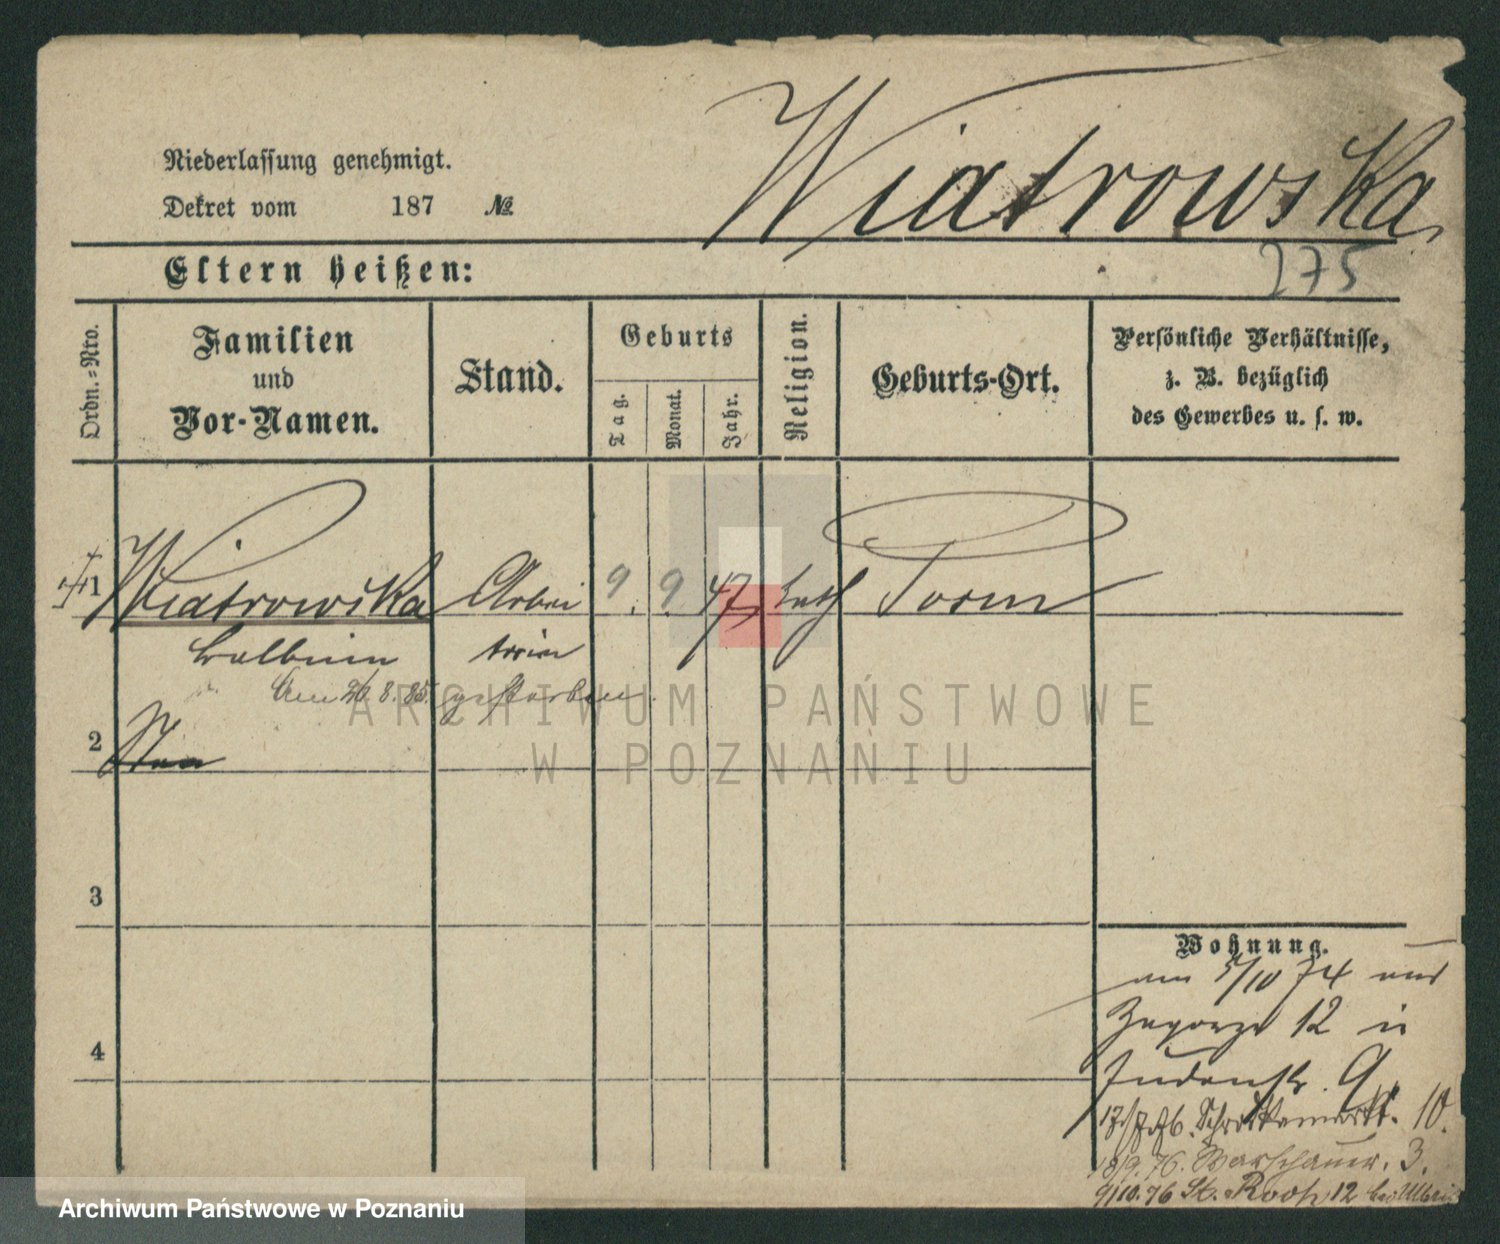 Wiatrowska
Niederlassung genehmigt.
Dekret vom 187 №
275
Eltern heißen:
Ordn.-Nro.
Familien
und
Vor-Namen.
Stand.
Geburts
Tag.
Monat.
Jahr.
Religion.
Geburts-Ort.
Persönliche Verhältnisse,
z. B. bezüglich
des Gewerbes u. s. w.
1 Wiatrowska Arbei 9. 9. 47 kath Posen
terin
Am 26.8.85. gestorben.
2
3
4
Wohnung.
am 5/10 74 aus
Zagorze 12 in
Judenstr. 9
17/7.76. Schrottkamarkt. 10.
18/9.76. Warschauer. 3.
9/10.76 St. Roch 12 bei
ARCHIWUM PAŃSTWOWE
W POZNANIU
Archiwum Państwowe w Poznaniu